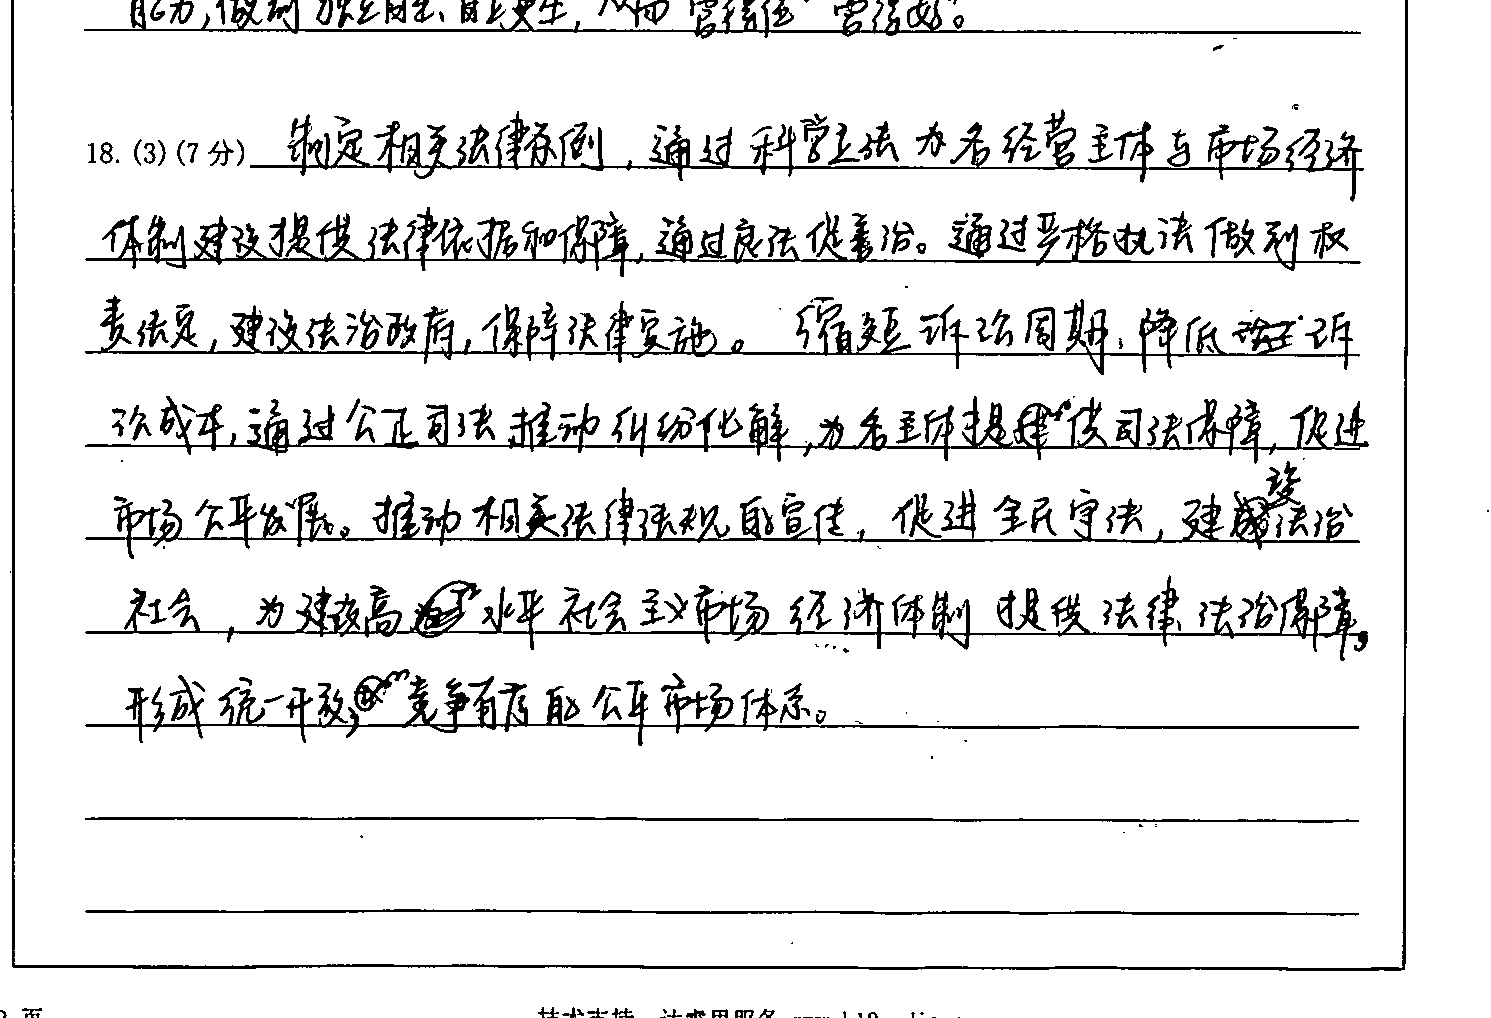 能力,做到独立自主、自力更生,从而"管得住""管得好"。
18. (3) (7分) 制定相关法律条例,通过科学立法为各经营主体与市场经济
体制建设提供法律依据和保障,通过良法促善治。通过严格执法做到权
责法定,建设法治政府,保障法律实施。 缩短诉讼周期,降低诉
讼成本,通过公正司法推动纠纷化解,为各主体提供司法保障,促进
市场公平发展。推动相关法律法规的宣传,促进全民守法,建设法治
社会,为建设高水平社会主义市场经济体制提供法律、法治保障,
形成统一开放,竞争有序的公平市场体系。
页